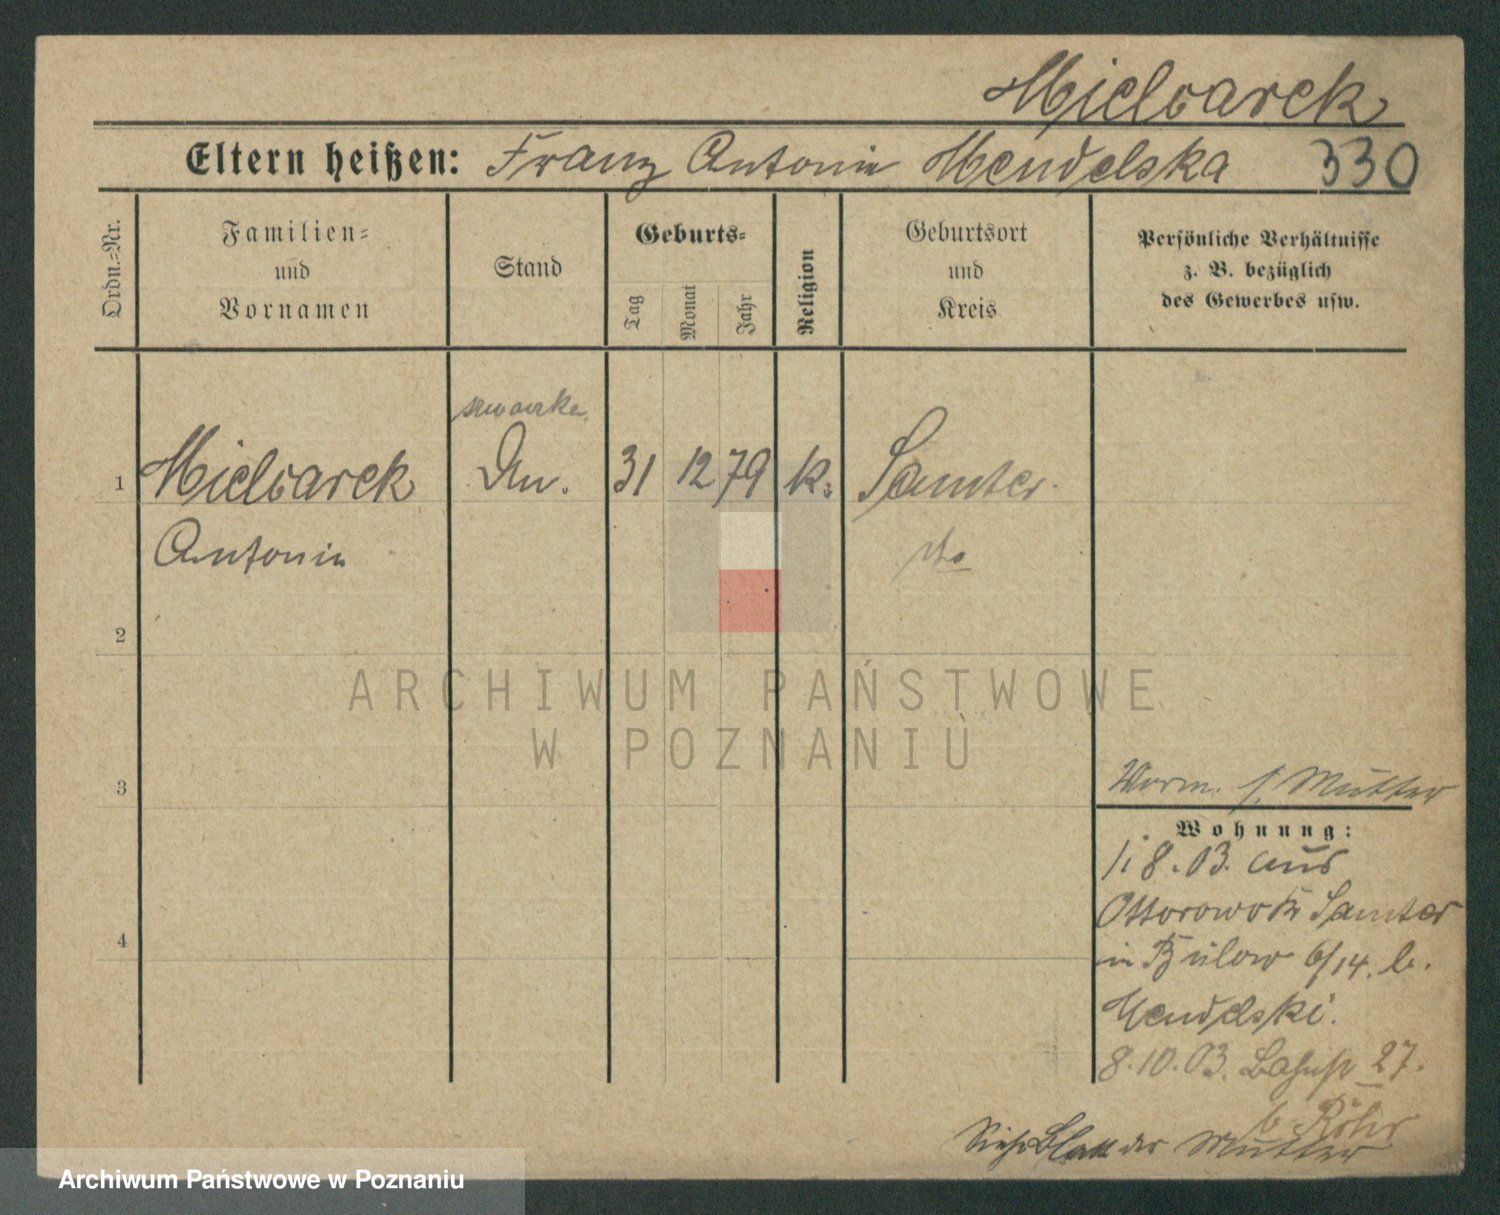 Mielcarek
Eltern heißen: Franz Antonie Mendelska 330
Ordn.-Nr.
Familien-
und
Vornamen
Stand
Geburts-
Tag
Monat
Jahr
Religion
Geburtsort
und
Kreis
Persönliche Verhältnisse
z. B. bezüglich
des Gewerbes usw.
1 Mielcarek 31 12 79 k. Samter
Antonie
2
ARCHIWUM PAŃSTWOWE
W POZNANIU
3
Mutter
Wohnung:
1. 8. 03. aus
Samter
in Bülow 6/14. b.
Mendelski.
8. 10. 03. 27.
b. Röhr
Siehe Blatt der Mutter
4
Archiwum Państwowe w Poznaniu